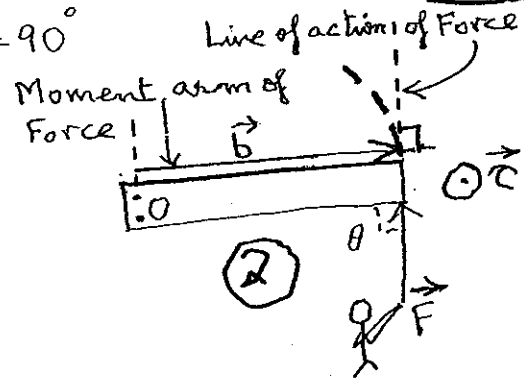 = 90°
Line of action of Force
Moment arm of
Force
b⃗
O
⊙ τ⃗
θ
2
F⃗